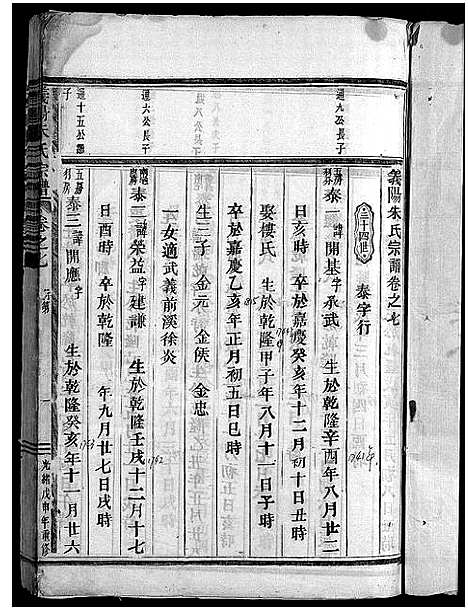 義陽朱氏宗譜卷之七
三十四世
泰字行
通九公長子
泰一諱開基字承武 生於乾隆辛酉年八月廿二
1741年
日亥時 卒於嘉慶癸亥年十二月初十日丑時
娶樓氏 生於乾隆甲子年八月十一日子時
卒於嘉慶乙亥年正月初五日巳時
生三子 金元 金俟 金忠
一女適武義前溪徐炎
通六公長子
泰二諱榮益字建謙 生於乾隆壬戌十二月十七
1742
日酉時 卒於乾隆 年九月廿七日戌時
通十五公繼子
五房
泰三諱開應字 生於乾隆癸亥年十一月廿六
1743
義陽朱氏宗譜
卷之七
一
光緒戊申年重修